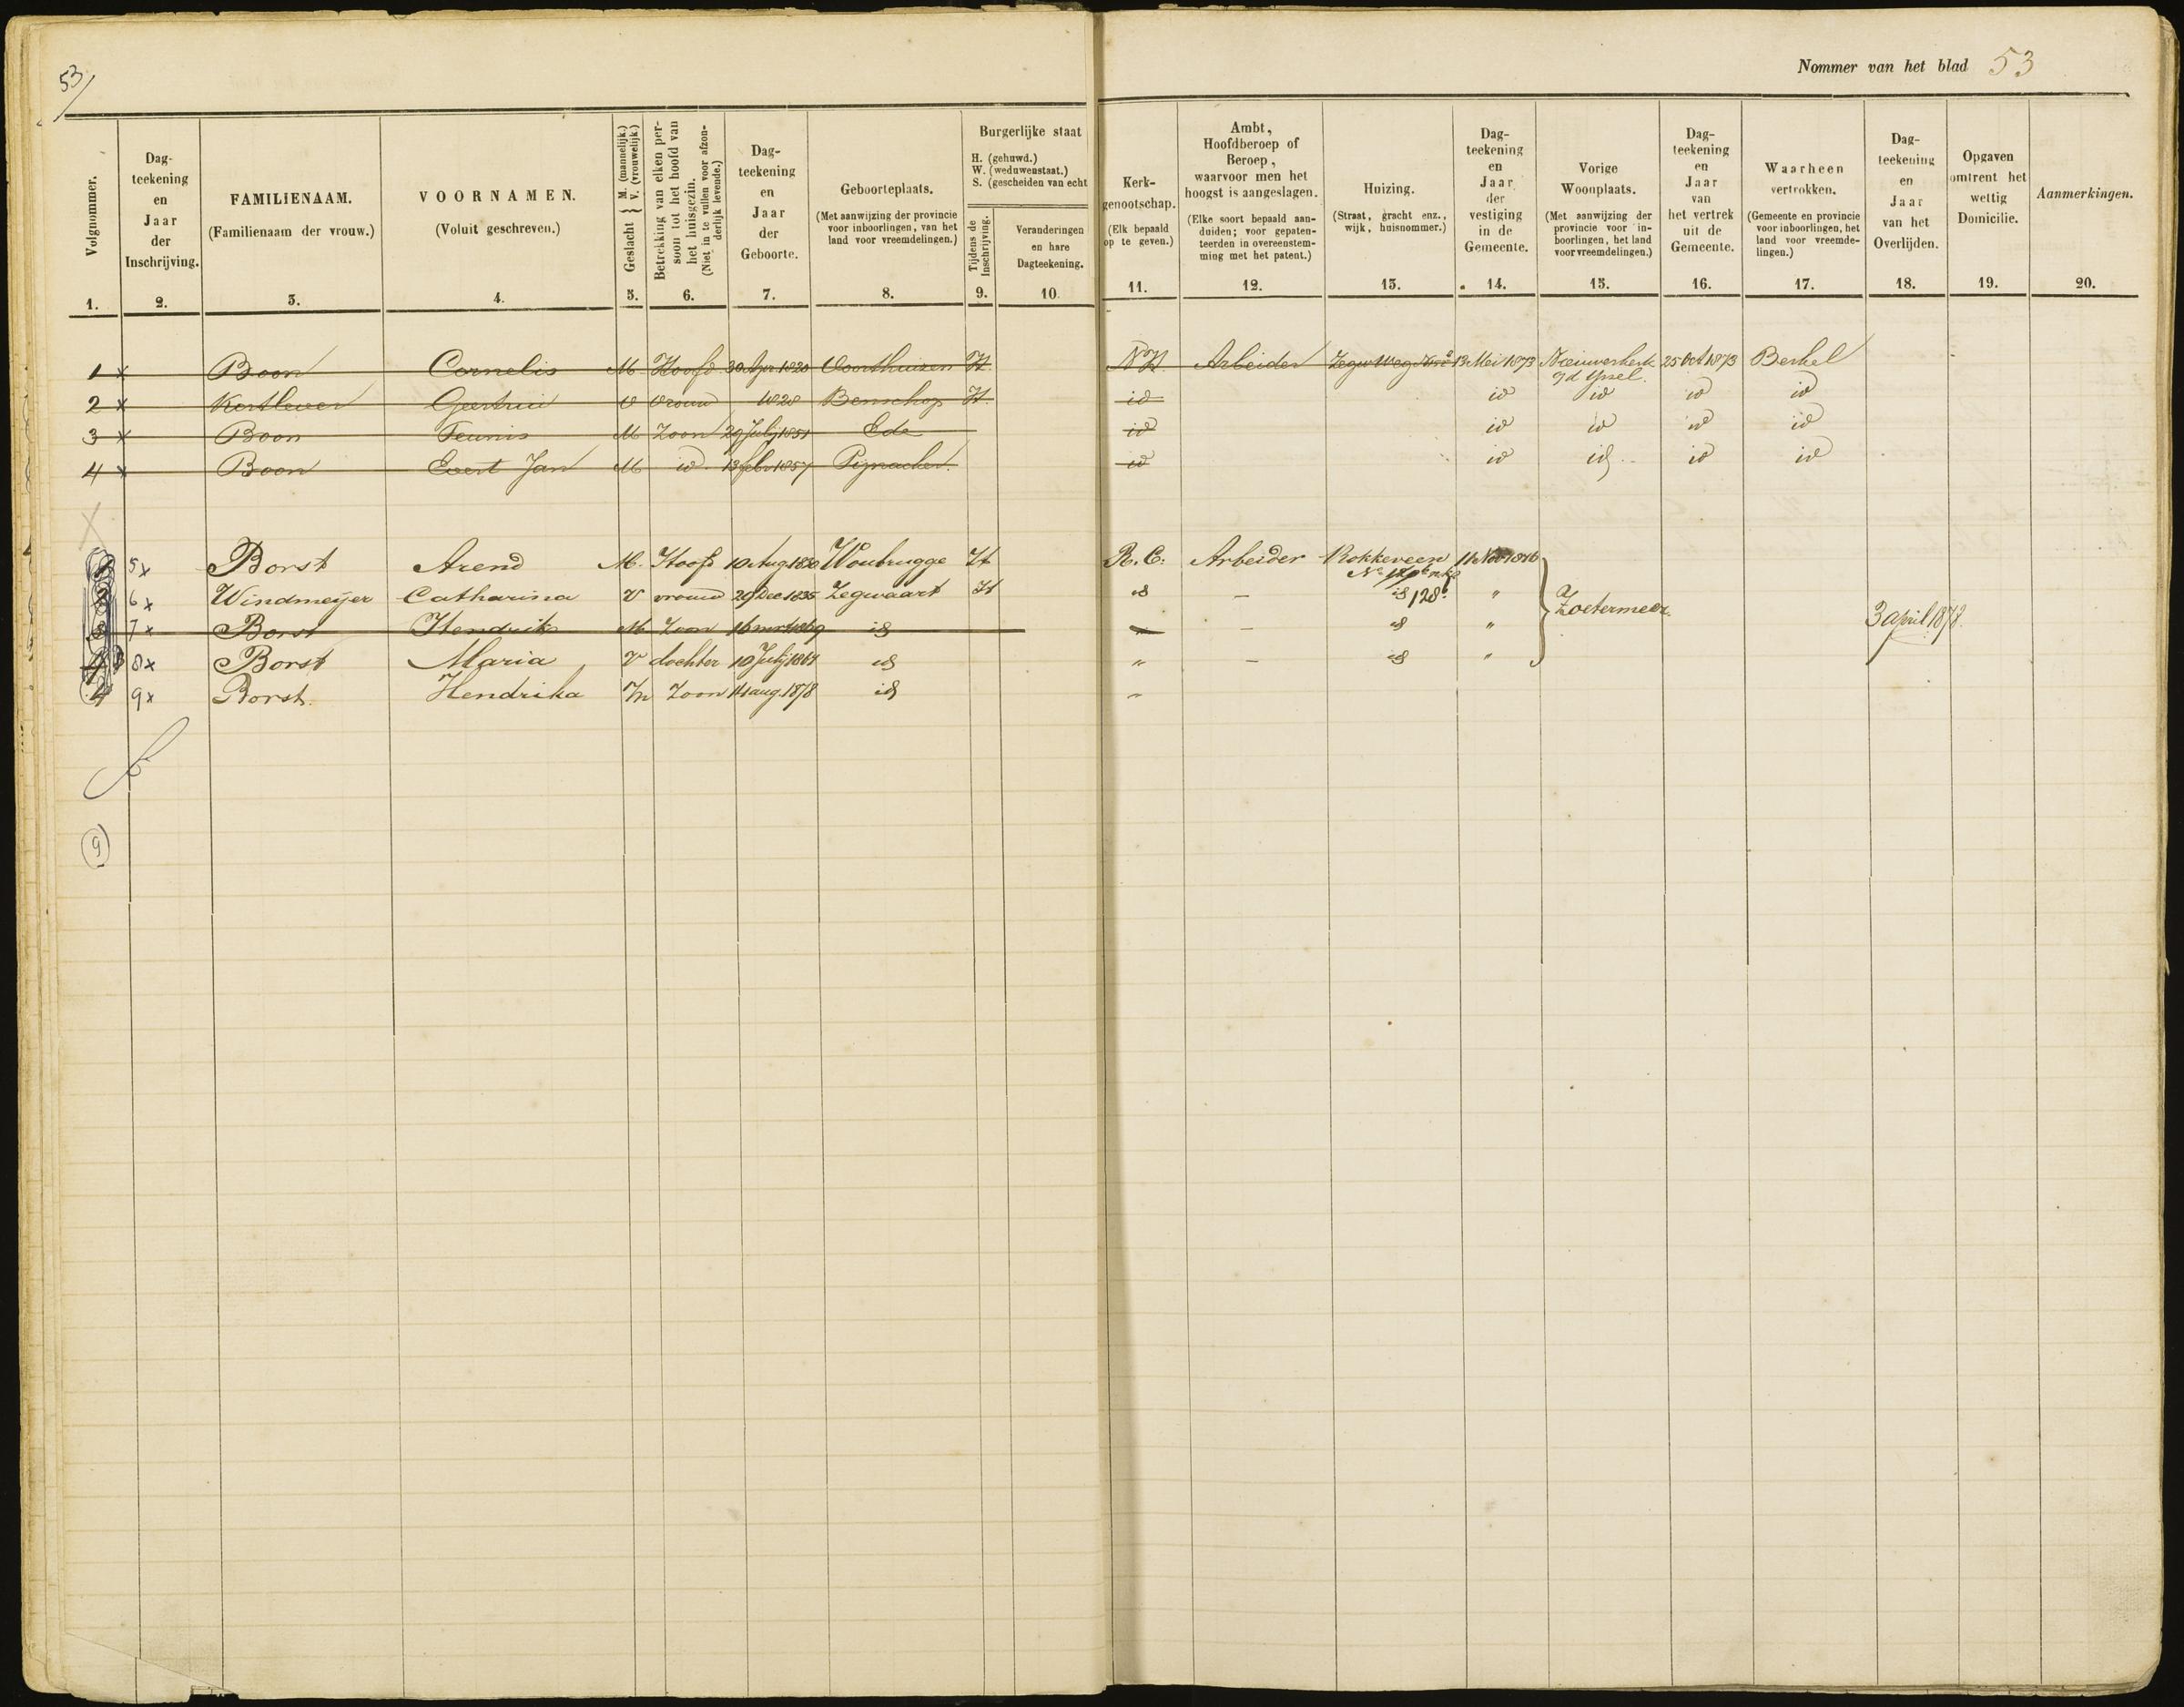 53
Nommer van het blad 53
Volgnommer.
Dag-
teekening
en
Jaar
der
Inschrijving.
FAMILIENAAM.
(Familienaam der vrouw.)
VOORNAMEN.
(Voluit geschreven.)
Geslacht } M. (mannelijk.) V. (vrouwelijk.)
Betrekking van elken per-
soon tot het hoofd van
het huisgezin.
(Niet in te vullen voor afzon-
derlijk levende.)
Dag-
teekening
en
Jaar
der
Geboorte.
Geboorteplaats.
(Met aanwijzing der provincie
voor inboorlingen, van het
land voor vreemdelingen.)
Burgerlijke staat
H. (gehuwd.)
W. (weduwenstaat.)
S. (gescheiden van echt
Tijdens de
Inschrijving.
Veranderingen
en hare
Dagteekening.
Kerk-
genootschap.
(Elk bepaald
op te geven.)
Ambt,
Hoofdberoep of
Beroep,
waarvoor men het
hoogst is aangeslagen.
(Elke soort bepaald aan-
duiden; voor gepaten-
teerden in overeenstem-
ming met het patent.)
Huizing.
(Straat, gracht enz.,
wijk, huisnommer.)
Dag-
teekening
en
Jaar
der
vestiging
in de
Gemeente.
Vorige
Woonplaats.
(Met aanwijzing der
provincie voor in-
boorlingen, het land
voor vreemdelingen.)
Dag-
teekening
en
Jaar
van
het vertrek
uit de
Gemeente.
Waarheen
vertrokken.
(Gemeente en provincie
voor inboorlingen, het
land voor vreemde-
lingen.)
Dag-
teekening
en
Jaar
van het
Overlijden.
Opgaven
omtrent het
wettig
Domicilie.
Aanmerkingen.
1. 2. 3. 4. 5. 6. 7. 8. 9. 10. 11. 12. 13. 14. 15. 16. 17. 18. 19. 20.
1 x Boon Cornelis M Hoofd 30 Apr 1820 Voorthuizen H N H. Arbeider Zegw Weg 13 Mei 1873 Nieuwerkerk 25 Oct 1873 Berkel
a/d Yssel.
2 x Kortlever Geertrui V vrouw 1828 Benschop H. id id id id id
3 x Boon Teunis M Zoon 29 July 1851 Ede id id id id id
4 x Boon Evert Jan M id 13 febr 1857 Pijnacker. id id id id id
5 x Borst Arend M. Hoofd 10 Aug 1830 Woubrugge H R. C. Arbeider Rokkeveen 11 Nov 1876
6 x Windmeijer Catharina V vrouw 29 Dec 1835 Zegwaart H id — id 128b " Zoetermeer
7 x Borst Hendrik M Zoon 16 mrt 1869 id — id " 3 april 1878.
3 8 x Borst Maria V dochter 10 July 1864 id " — id "
4 9 x Borst. Hendrika M Zoon 14 aug. 1878 id "
9